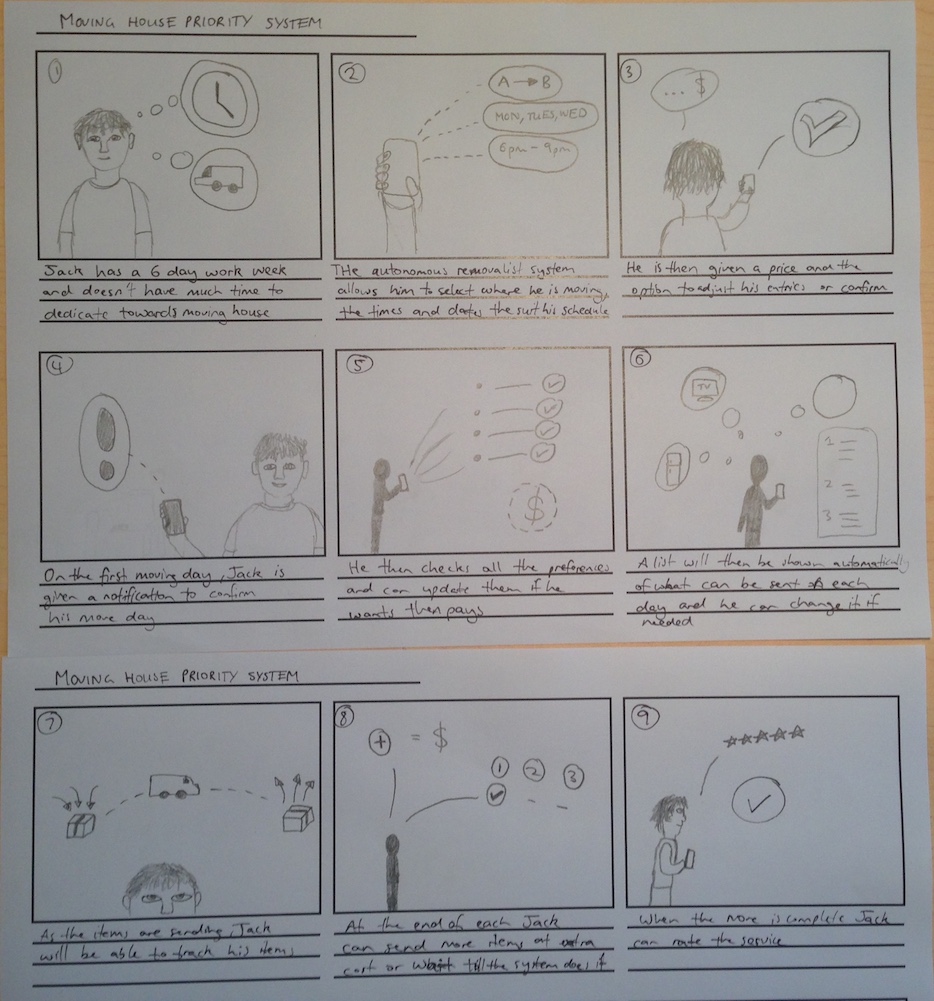 MOVING HOUSE PRIORITY SYSTEM
1
Jack has a 6 day work week
and doesn't have much time to
dedicate towards moving house
2
A → B
MON, TUES, WED
6pm - 9pm
THe autonomous removalist system
allows him to select where he is moving,
the times and dates the suit his schedule
3
... $
He is then given a price and the
option to adjust his entries or confirm
4
!
On the first moving day, Jack is
given a notification to confirm
his move day
5
$
He then checks all the preferences
and can update them if he
wants then pays
6
TV
1
2
3
A list will then be shown automatically
of what can be sent of each
day and he can change it if
needed
MOVING HOUSE PRIORITY SYSTEM
7
As the items are sending, Jack
will be able to track his items
8
+ = $
1 2 3
At the end of each Jack
can send more items at extra
cost or wait till the system does it
9
When the move is complete Jack
can rate the service